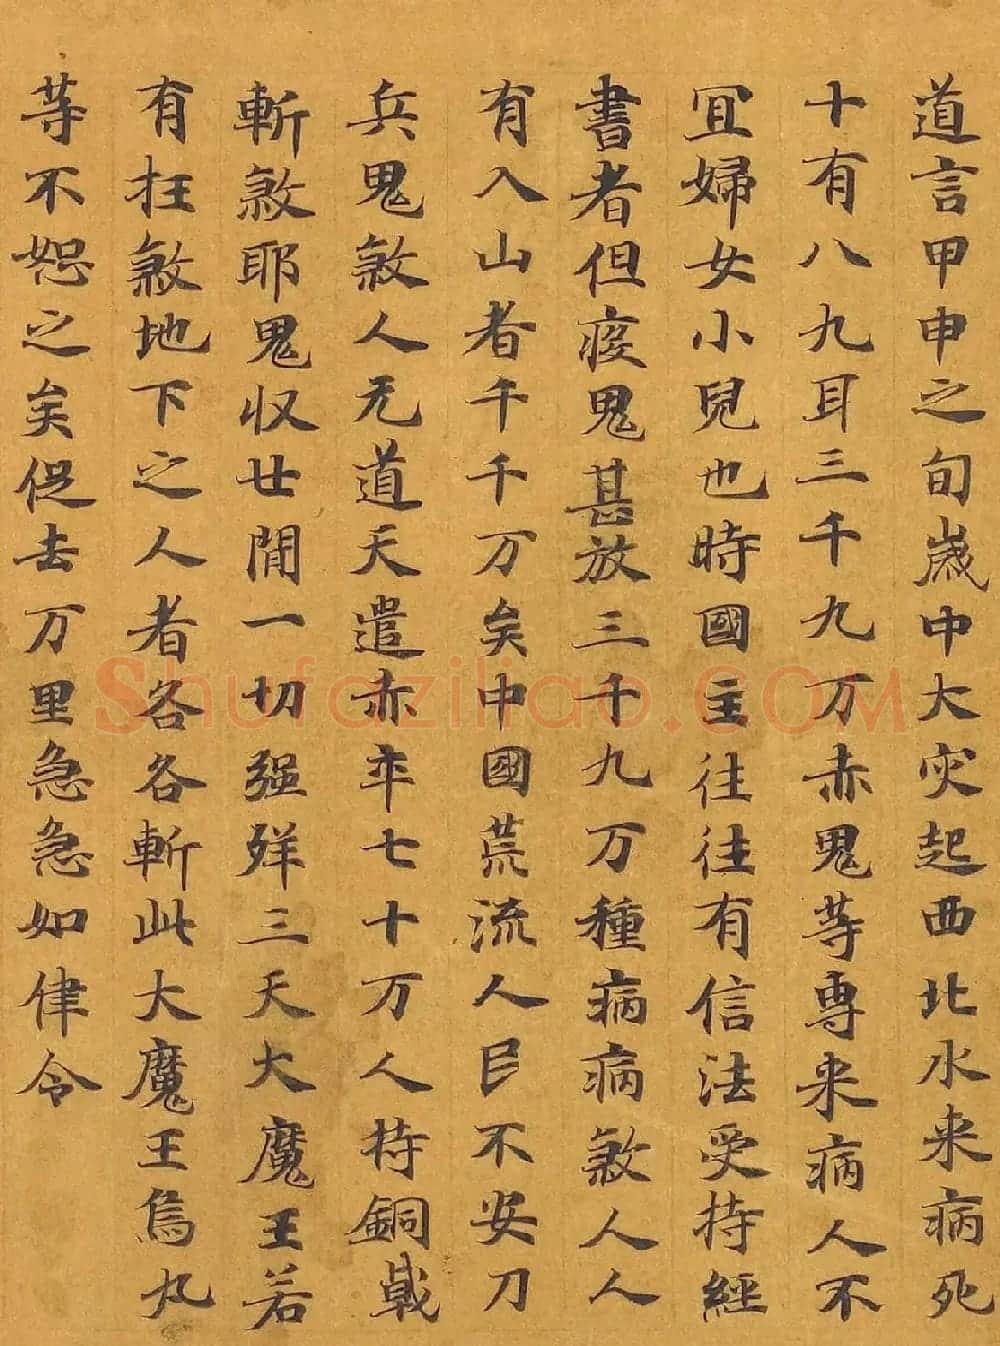 道言甲申之旬歲中大灾起西北水来病死
十有八九耳三千九万赤鬼等専来病人不
冝婦女小兒也時國主往往有信法受持經
書者但疫鬼甚放三千九万種病病煞人人
有入山者千千万矣中國荒流人民不安刀
兵鬼煞人无道天遣赤卒七十万人持銅戟
斬煞耶鬼収廿閒一切强殃三天大魔王若
有抂煞地下之人者各各斬此大魔王烏丸
等不恕之矣促去万里急急如律令
Shufaziliao.COM